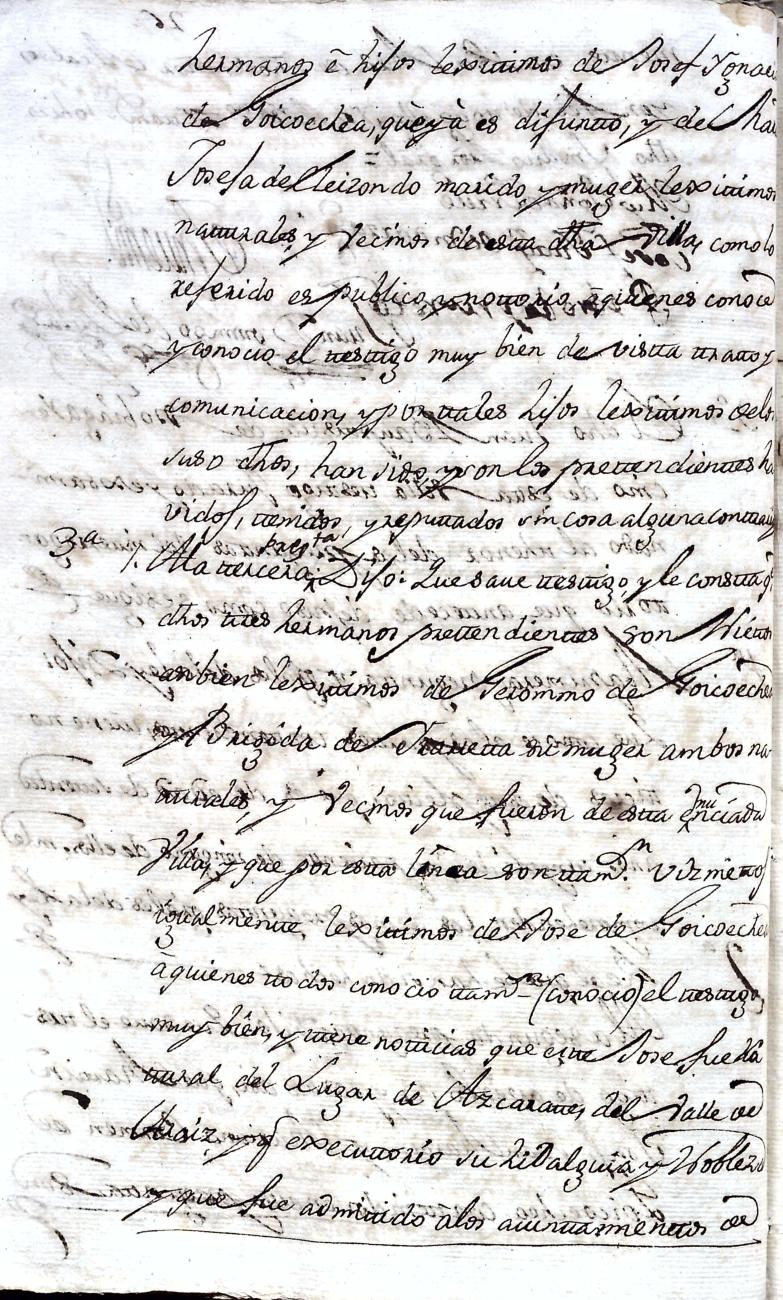 hermanos ê hijos lexitimos de Josef Ygnaci
de Goicoechea, què yà es difunto, y de Ma
Josefa de Eleizondo marido y muger lexitimos
naturales, y Vecinos de esta dha Villa, como lo
referido es publico y nottorio, à quienes conoce
y conocio el testigo muy bien de vista tratto y
comunicacion, y por tales hijos lexitimos de los
suso dhos, han sido, y son los prettendientes ha
vidos, tenidos, y reputtados sin cosa alguna contraria
3ª A la tercera pregta Dijo: Que save testigo, y le consta qe
dhos tres hermanos prettendientes son Niettos
tanbien lexitimos de Geronimo de Goicoechea
y Brigida de su muger ambos na
turales, y Vecinos que fueron de esta enunciada
Villa, y que por esta linea son tamvn. vizniettos
igualmente, lexitimos de Jose de Goicoechea
à quienes ttodos conocio tamvn (conocio) el testigo,
muy bien, y tiene noticias que este Jose fue na
tural del Lugar de Azcarate, del Valle de
Araiz, y qe executtorio su hidalguia y Nobleza
y que fue admitido a los aiuntamientos de